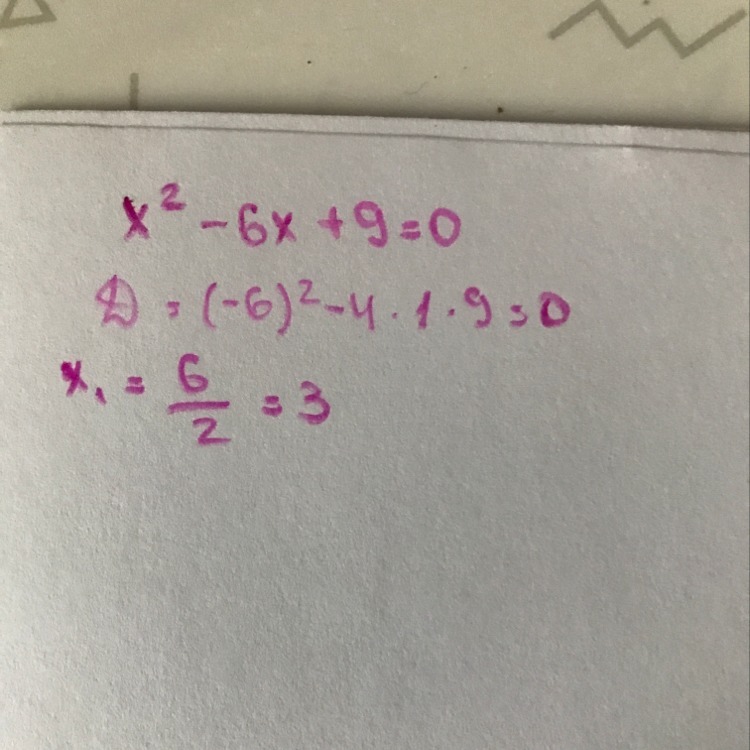 x² - 6x + 9 = 0
D = (-6)² - 4 · 1 · 9 = 0
x₁ = 6/2 = 3